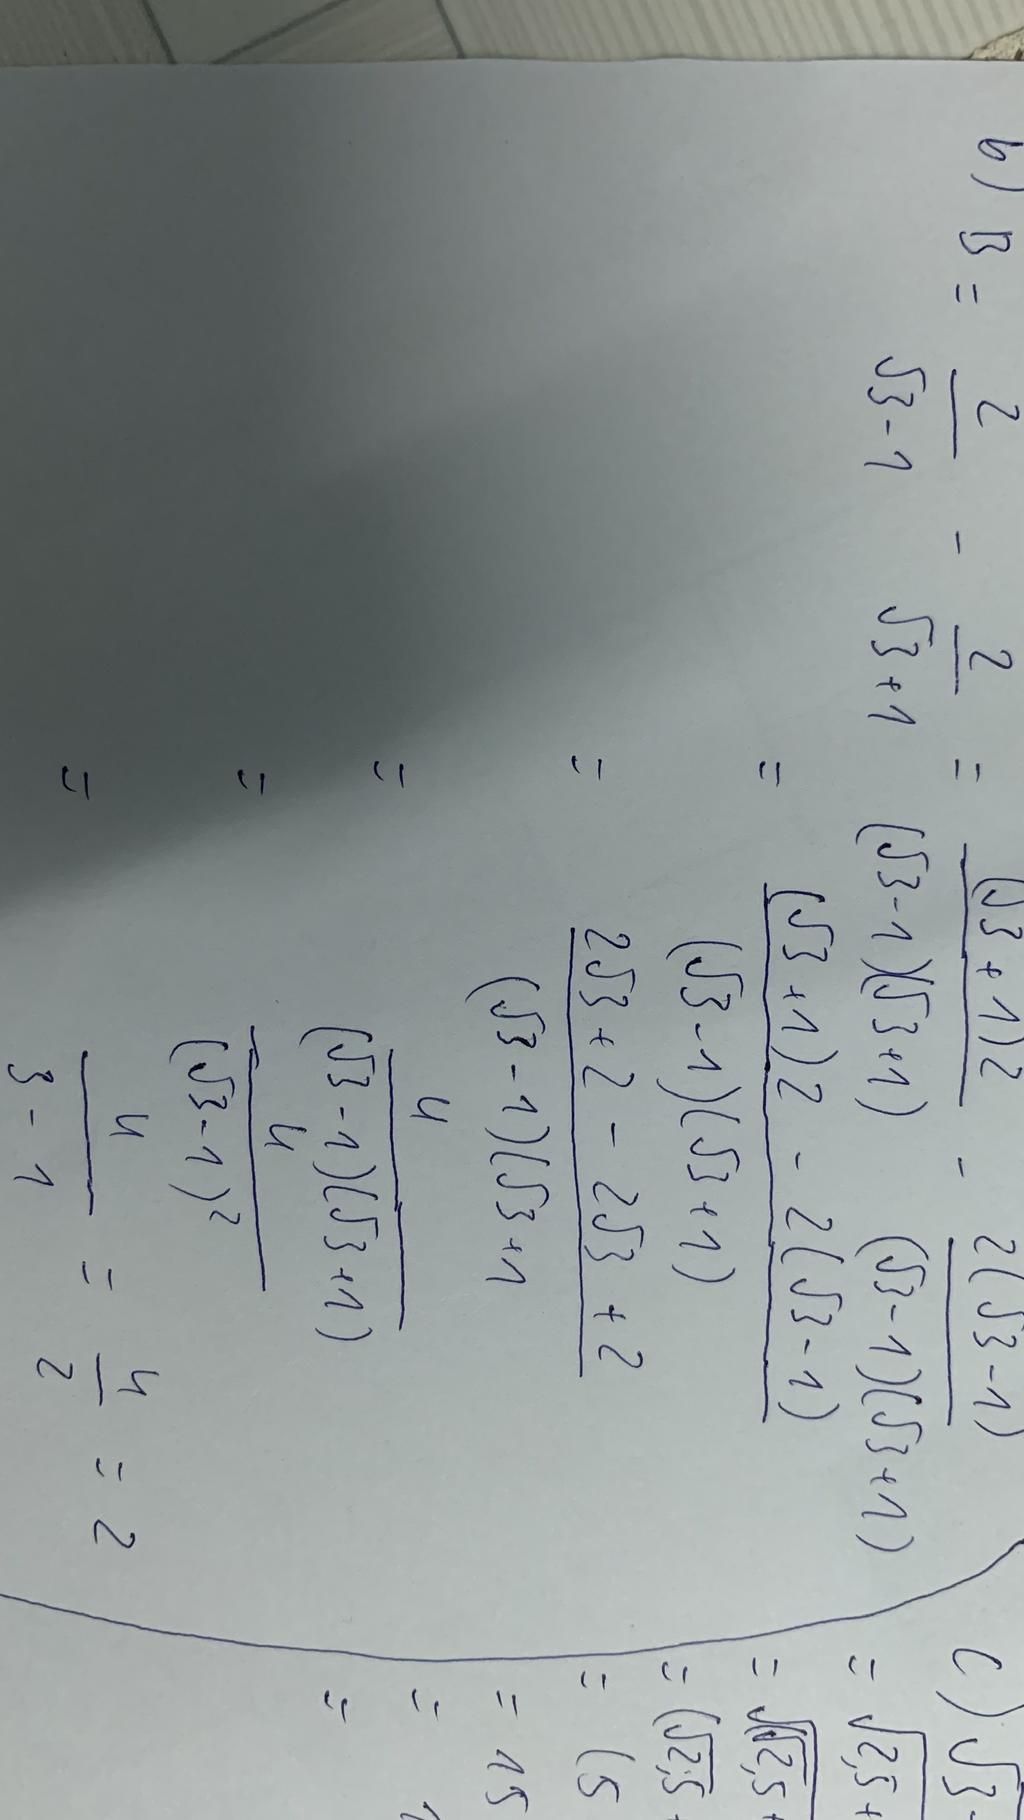 b) B = 2/(√3-1) - 2/(√3+1) = (√3+1)2/(√3-1)(√3+1) - 2(√3-1)/(√3-1)(√3+1)
= (√3+1)2 - 2(√3-1)/(√3-1)(√3+1)
= 2√3+2 - 2√3+2/(√3-1)(√3+1
= 4/(√3-1)(√3+1)
= 4/(√3-1)²
= 4/3-1 = 4/2 = 2
c) √3-
= √2,5+
= √√2,5+
= (√2,5+
= (5
= 15
=
=